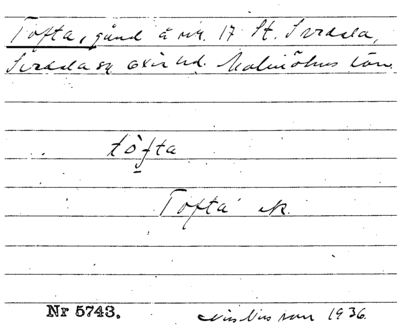 Tofta, gård å nr. 17 St. Svedala,
Svedala sn. Oxie hd. Malmöhus län.
tòfta
Tofta ek.
Nr 5743.
Nils Nilsson 1936.